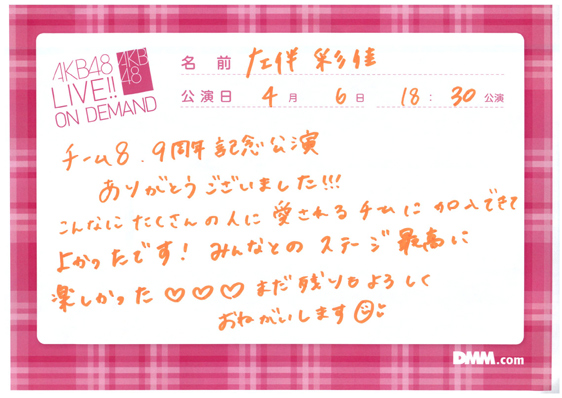 AKB48
LIVE!!
ON DEMAND
AKB
48
名前 左伴 彩佳
公演日 4月 6日 18:30公演
チーム8.9周年記念公演
ありがとうございました!!!
こんなにたくさんの人に愛されるチームに加入できて
よかったです! みんなとのステージ最高に
楽しかった♡♡♡まだ残りもよろしく
おねがいします
DMM.com